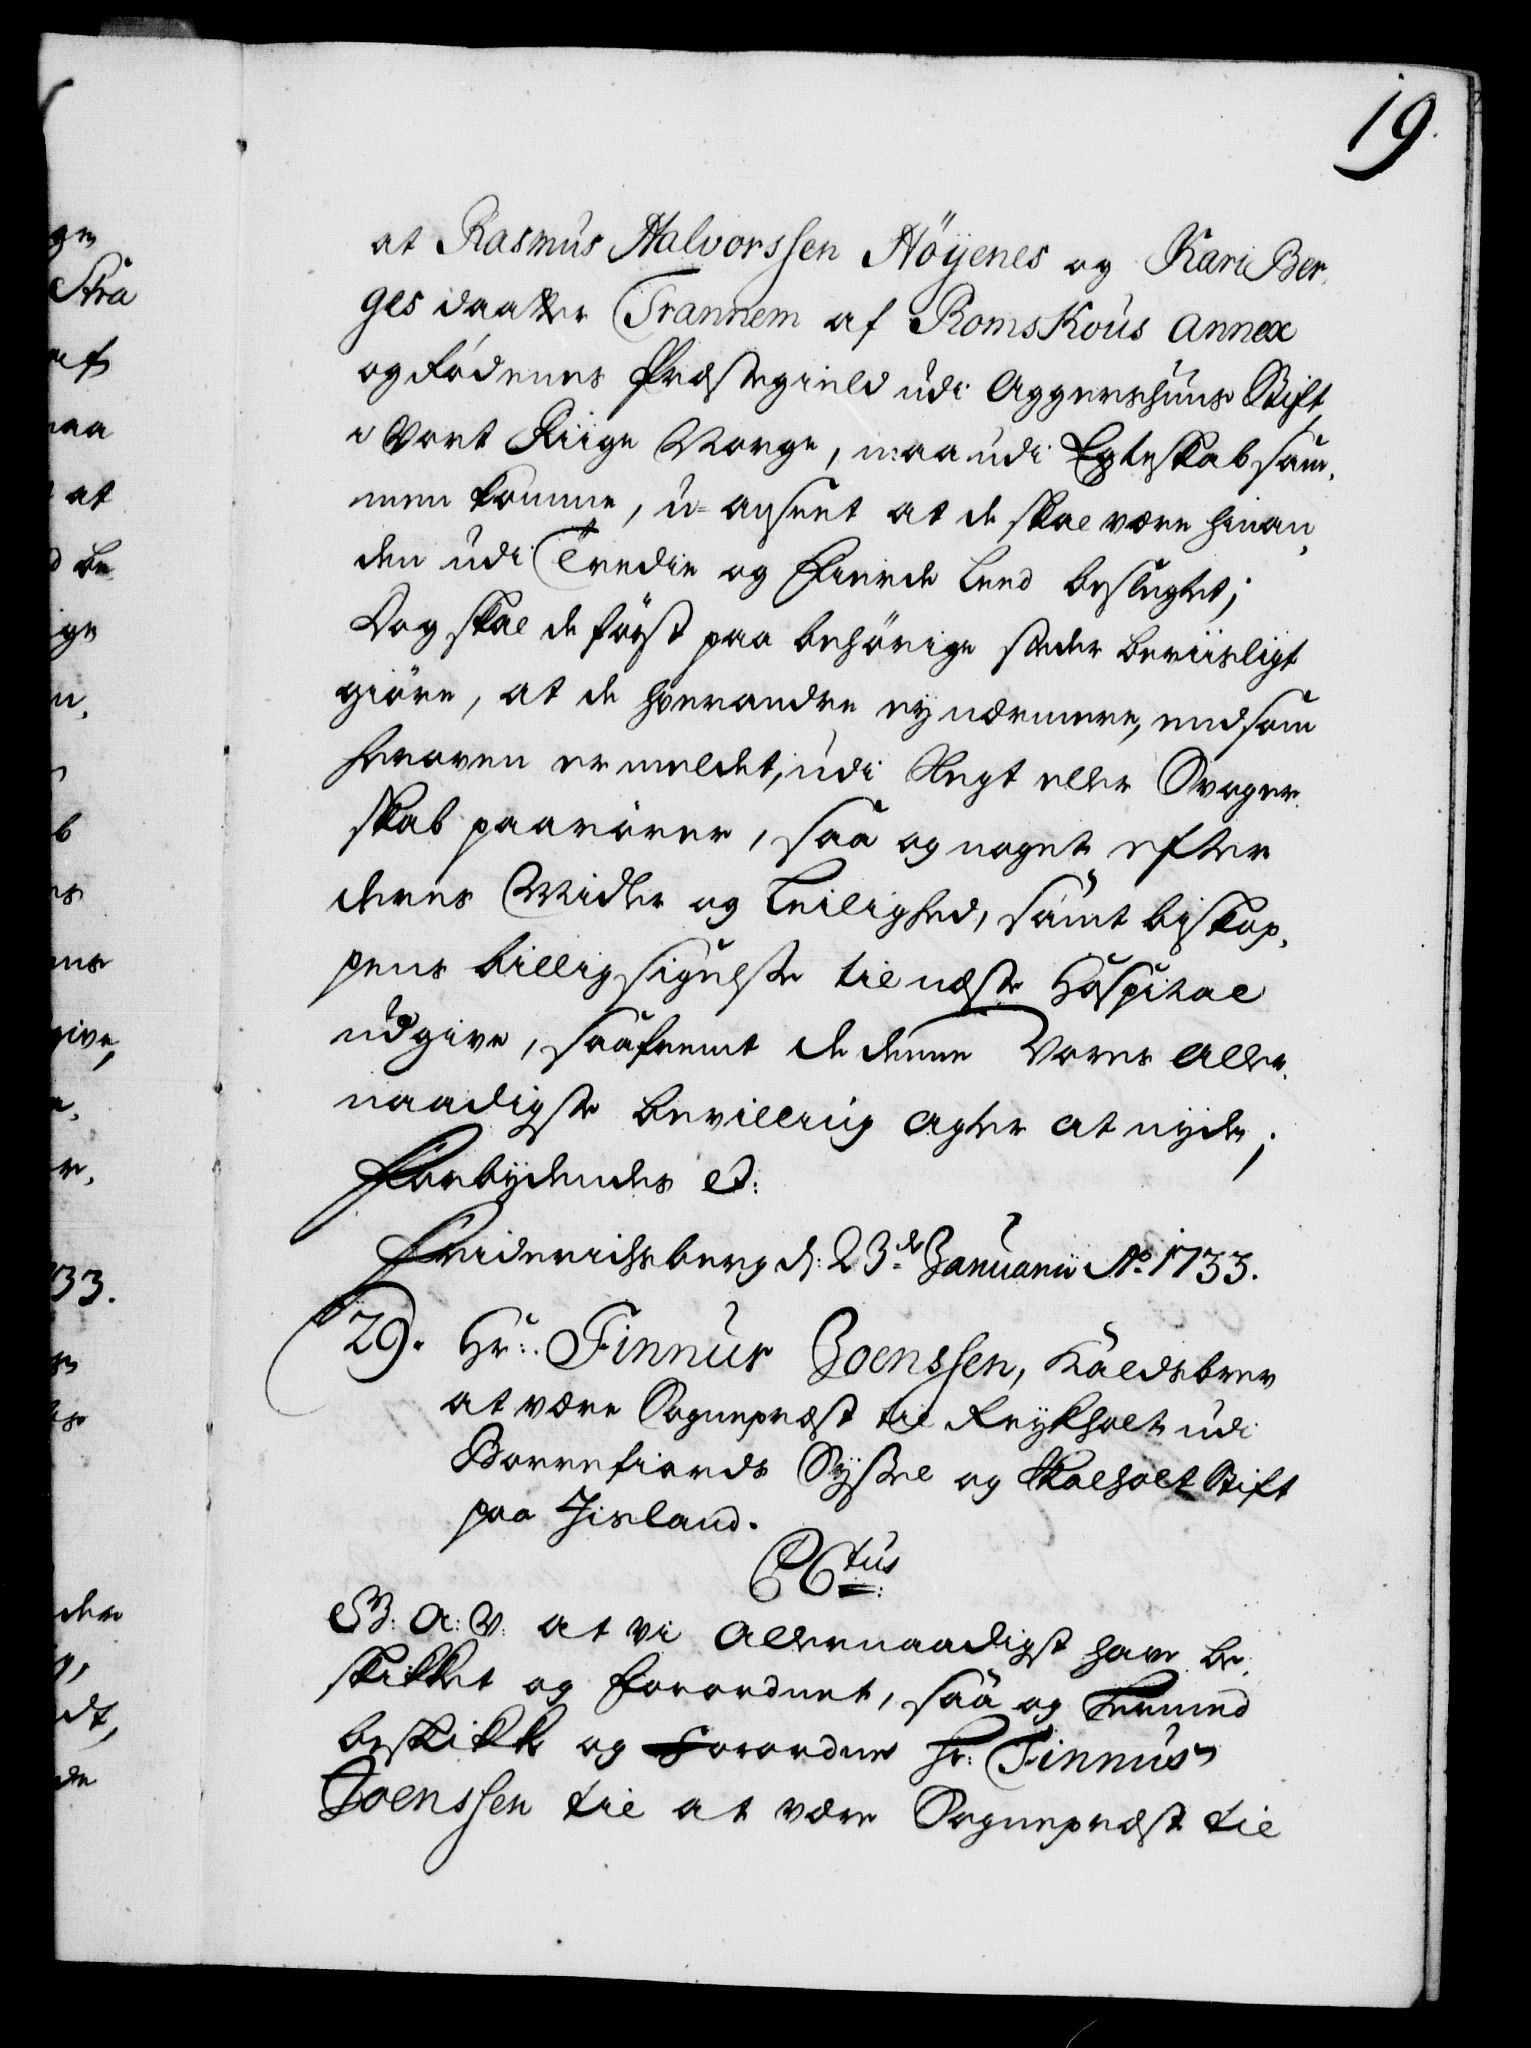 19.
at Rasmus Halvorssen Höÿenes og Kari Ber-
ges daatter Trannem af Romskous annex
og Födenes Præstegield udi Aggershuus Stift
i Vort Riige Norge, maa udi Egteskab sam-
men komme, u-anseet at de skal være hinan-
den udi Tredie og Fierde Leed beslegtet;
Dog skal de först paa behörige stæder beviisligt
giöre, at de hverandre ey nærmere, end som
heroven ermeldet, udi Slegt eller Svoger-
skab paarörer, saa og noget efter
deres Midler og Leilighed, samt biskop-
pens billigsigelse til næste Hospital
udgive, saafremt de denne Vores aller-
naadigste bevilling agter at nyde;
Forbydendes et:
Friderichsberg d: 23de Januarii Ao. 1733.
29. Hr: Finnur Joenssen, Kaldsbrev
at være Sognepræst til Reykholt udi
Borrefiords Syssel og Skalholt Stift
paa Jisland.
C6tus
G: A: V: at vi allernaadigst have be-
skikket og forordnet, saa og hermed
beskikke og forordne hr: Finnus
Joenssen til at være Sognepræst til
ge
Stra
af
maa
at
be
ige
n,
b
es
ens
give,
r,
33.
der
dt,
de